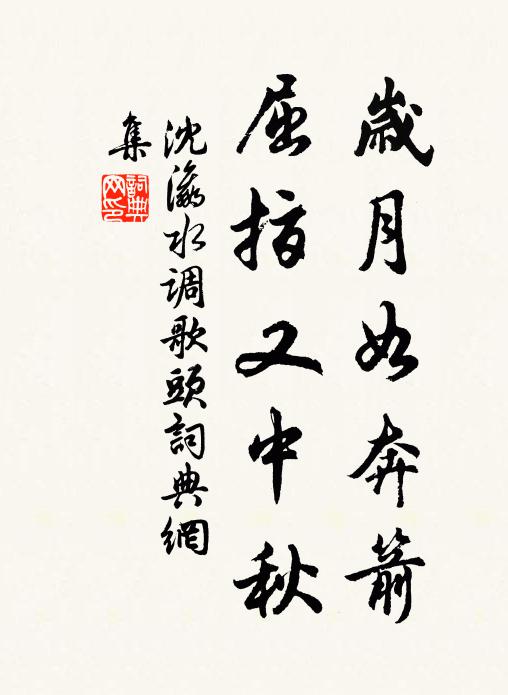 歲月如奔箭
屈指又中秋
沈瀛水调歌頭詞典網
集
詞典網印